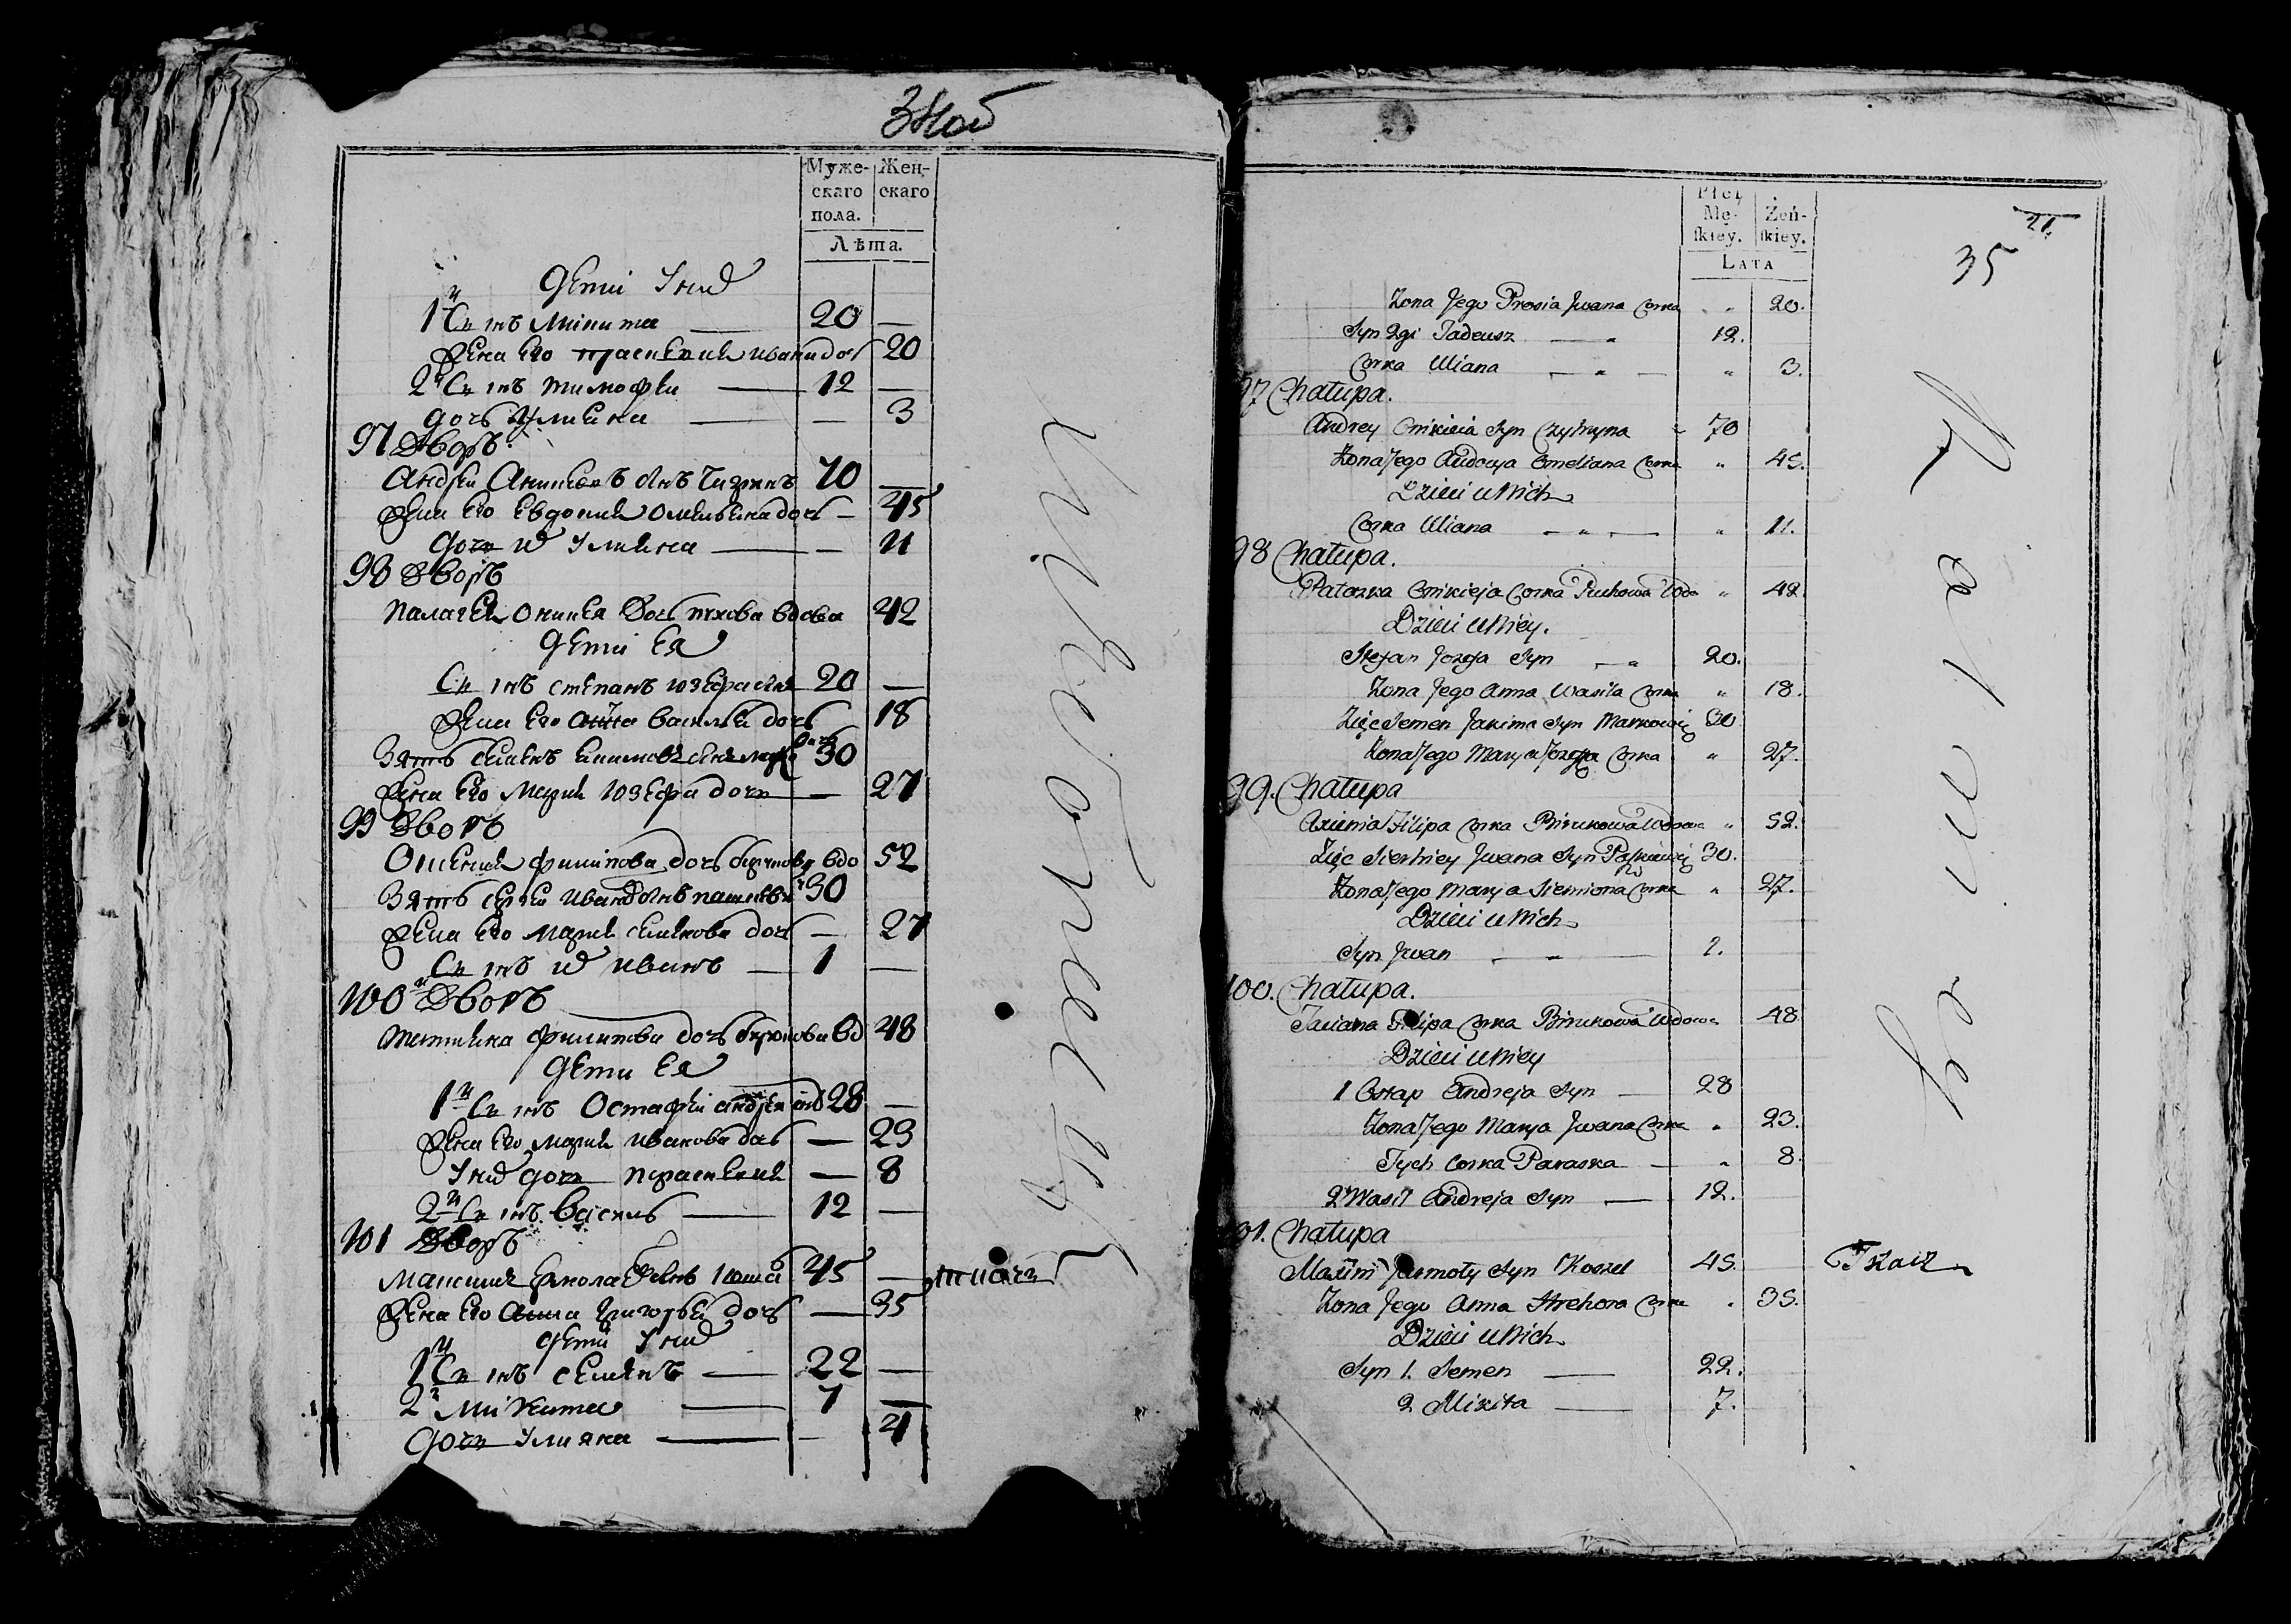 34об
Муже-
скаго
пола.
Жен-
скаго
Лѣта.
Дети У них
1й Сынъ Микита — 20 —
Жена Его Праскевия Ивана доч 20
2й Сынъ Тимофеи — 12 —
Дочь Улияна — — 3
97 Дворъ
Андреи Аникеевъ Сынъ 70 —
Жена Его Евдокия Омельяна доч — 45
Дочь их Улияна — — 11
98 Дворъ
Палагея Оникея Дочь вдова 42
Дети Ея
Сынъ Степанъ Юзефа Сынъ 20 —
Жена Его Анна Василья дочь 18
Зять Семенъ 30
Жена Его Мария Юзефа дочь — 27
99 Дворъ
Филипова дочь вдо 52
Зять Сергеи Ивана Сынъ 30
Жена Его Мария Семенова доч — 27
Сынъ их Иванъ — 1 —
100й Дворъ
Татияна Филипова дочь Бирюкова вд 48
Дети Ея
1й Сынъ Остафеи Андрея Сынъ 28 —
Жена Его Мария Иванова дочь — 23
У них дочь Праскевия — 8
2й Сынъ Василь — 12 —
101 Дворъ
Максимъ Ермола Сынъ 45 — ткачь
Жена Его Анна Григорьеи дочь — 35
Дети У них
1й Сынъ Семенъ — 22 —
2й Микита — 7 —
Дочь Улияна — — 4
Płci
Mę-
skiey.
Żeń-
skiey.
LATA
21.
35
Zona Jego Prosia Jwana Corka " 20.
Syn 2gi Tadeusz — " 12.
Corka Uliana — " — " 3.
97 Chałupa.
Andrey Onikieia Syn Czyhryna 70
Zona Jego Audocya Omeliana Corka " 45.
Dzieci u Nich
Corka Uliana — " — " 11.
98 Chałupa.
Onikieja Corka Wdo " 42
Dzieci u Niey.
Stefan Jozefa Syn — " 20.
Zona Jego Anna Wasila Corka " 18.
Zięć Semen Jakima Syn Markowicz 30
Zona Jego Marya Jozefa Corka " 27.
99. Chałupa
Axienia Filipa Corka Birukowa Wdowa " 52.
Zięć Sierhiey Jwana Syn Paszkiewicz 30.
Zona Jego Marya Siemiona Corka " 27.
Dzieci u Nich
Syn Jwan — " — 1.
100. Chałupa.
Taciana Filipa Corka Birukowa Wdowa 48
Dzieci u Niey
1 Ostap Andreja Syn — 28
Zona Jego Marya Jwana Corka " 23.
Tych Corka Paraska — " 8.
2 Wasil Andreja Syn — 12.
01. Chałupa
Maxim Jarmoły Syn Koszel 45. Tkacz
Zona Jego Anna Hrehora Corka " 35.
Dzieci u Nich
Syn 1. Semen — 22.
2 Mikita — 7.